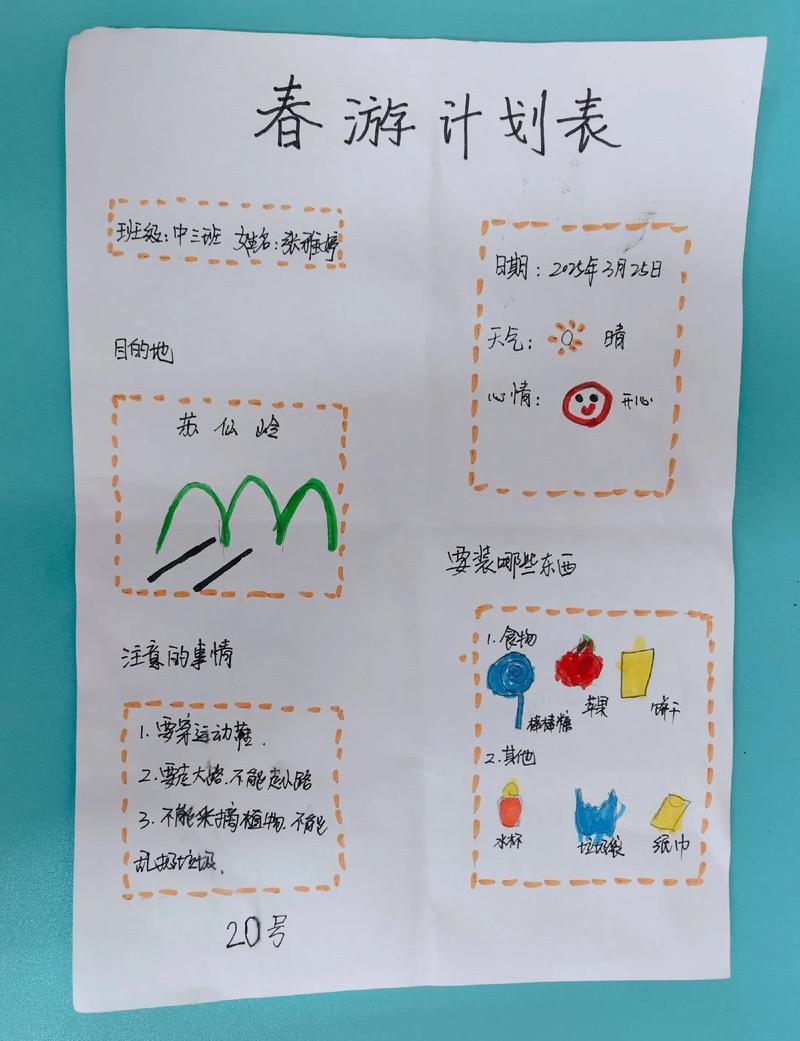 春游计划表
班级:中三班 姓名:张雅婷
日期:2025年3月25日
天气: 晴
心情: 开心
目的地
苏仙岭
要装哪些东西
1.食物
棒棒糖 苹果 饼干
2.其他
水杯 垃圾袋 纸巾
注意的事情
1.要穿运动鞋.
2.要走大路.不能走小路
3.不能采摘植物.不能
乱扔垃圾.
20号